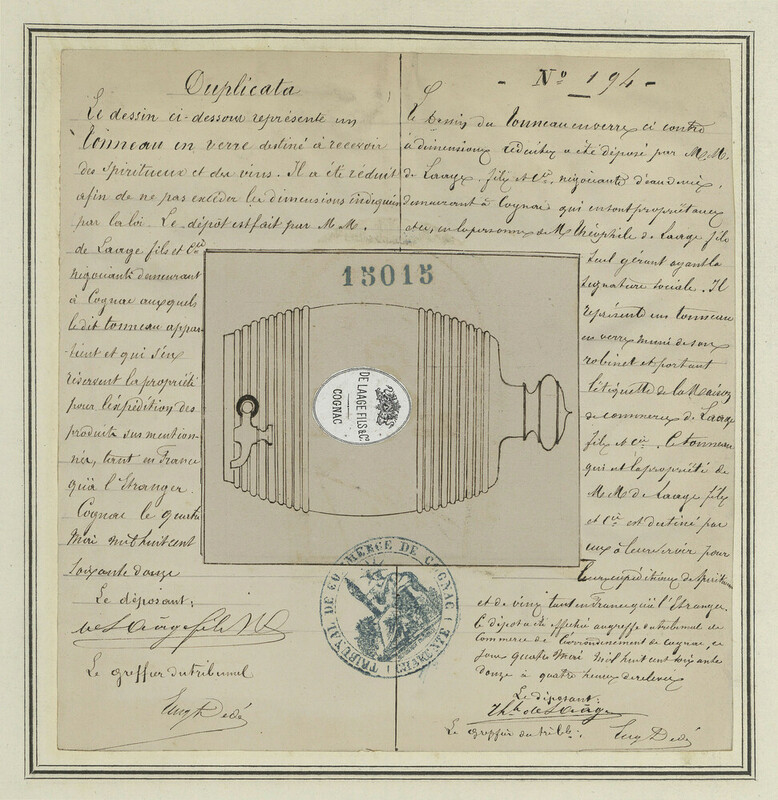 Duplicata
Le dessin ci-dessous représente un
tonneau en verre destiné à recevoir
des Spiritueux et des vins. Il a été réduit
afin de ne pas excéder les dimensions indiquées
par la loi. Le dépôt est fait par M.M.
de Laage fils et Cie
négociants demeurant
à Cognac auxquels
le dit tonneau appar-
tient et qui s'en
réservent la propriété
pour l'expédition des
produits sus mention-
nés, tant en France
qu'à l'Etranger.
Cognac le quatre
Mai mil huit cent
soixante douze
Le déposant:
de Laage fils
Le greffier du tribunal
Eug Dedé
- No 194 -
Le dessin du tonneau en verre ci contre
à dimensions réduites a été déposé par M.M.
de Laage fils et Cie, négociants d'eau de vie,
demeurant à Cognac qui en sont propriétaires
et ce, en la personne de M. Théophile de Laage fils
seul gérant ayant la
signature sociale. Il
représente un tonneau
en verre muni de son
robinet et portant
l'étiquette de la Maison
de commerce de Laage
fils et Cie. Ce tonneau
qui est la propriété de
M.M. de Laage fils
et Cie est destiné par
eux à leur servir pour
leurs expéditions de Spiritueux
et de vins tant en France qu'à l'Etranger.
Le dépôt a été effectué au greffe du tribunal de
Commerce de l'arrondissement de Cognac, ce
jour quatre Mai mil huit cent soixante
douze à quatre heures de relevée
Le déposant:
Th. de Laage
Le greffier du trib:
Eug Dedé
15015
DE LAAGE FILS & Co
COGNAC
TRIBUNAL DE COMMERCE DE COGNAC (CHARENTE)